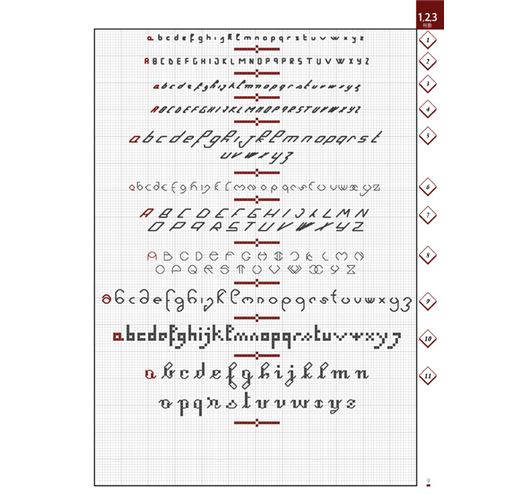 1,2,3
a b c d e f g h i j k l m n o p q r s t u v w x y z
1
A B C D E F G H I J K L M N O P Q R S T U V W X Y Z
2
a b c d e f g h i j k l m n o p q r s t u v w x y z
3
A B C D E F G H I J K L M N O P Q R S T U V W X Y Z
4
a b c d e f g h i j k l m n o p q r s t
5
u v w x y z
a b c d e f g h i j k l m n o p q r s t u v w x y z
6
A B C D E F G H I J K L M N
7
O P Q R S T U V W X Y Z
A B C D E F G H I J K L M N
8
O P Q R S T U V W X Y Z
a b c d e f g h i j k l m n o p q r s t u v w x y z
9
a b c d e f g h i j k l m n o p q r s t u v w x y z
10
a b c d e f g h i j k l m n
11
o p q r s t u v w x y z